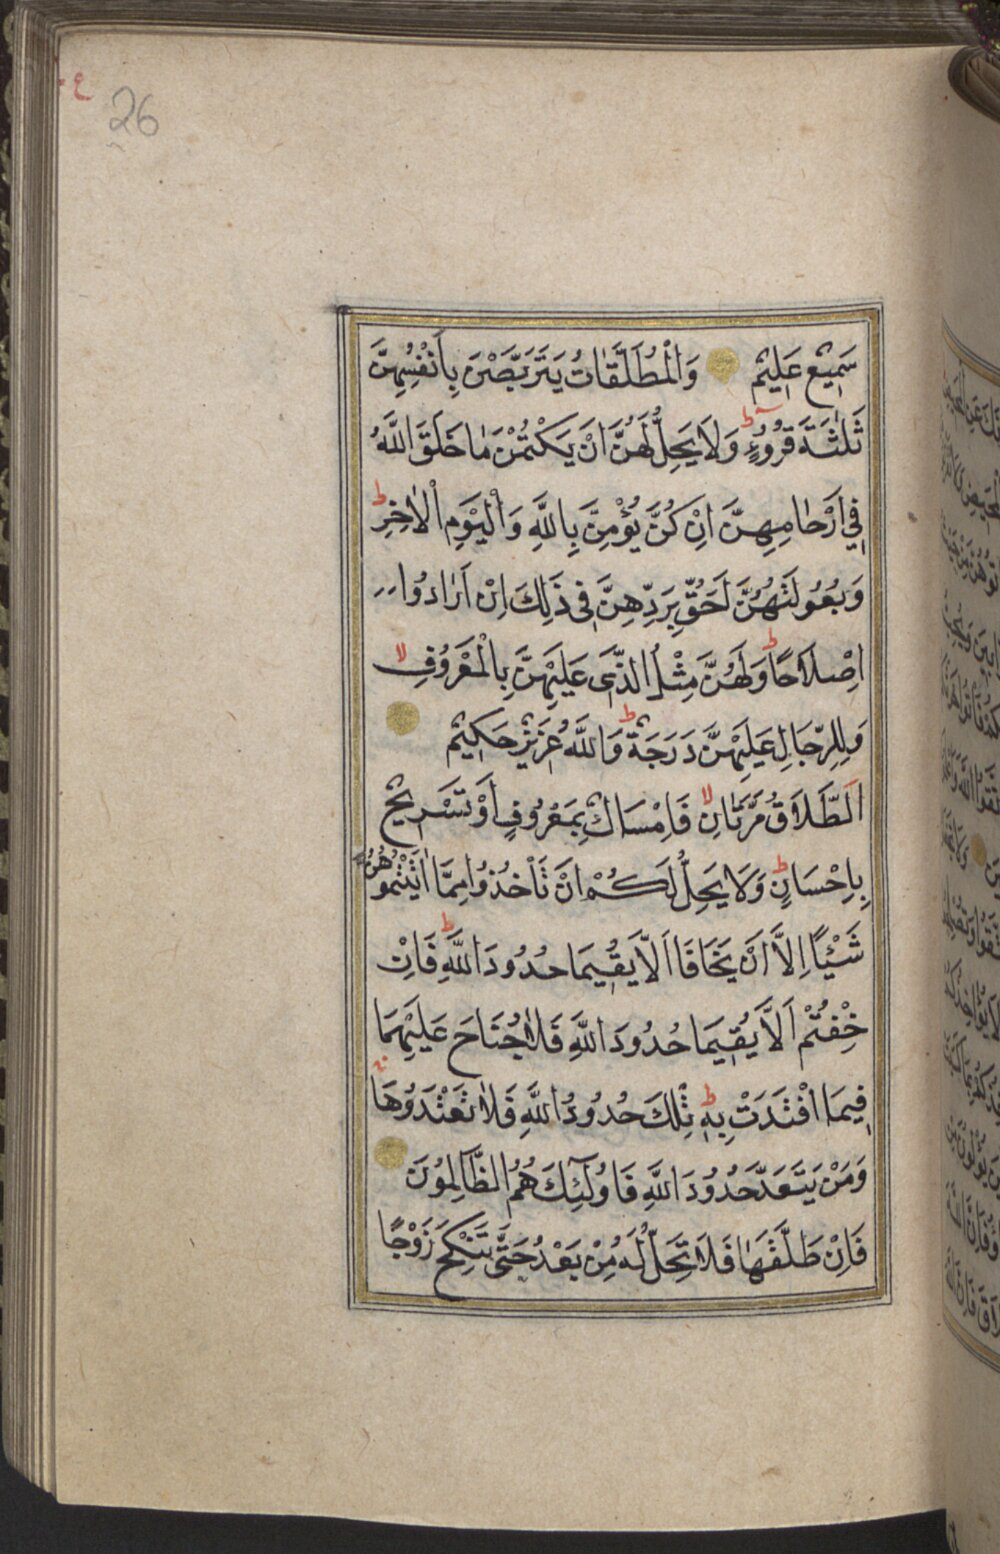 26
سَمِيعٌ عَلِيمٌ وَالْمُطَلَّقَاتُ يَتَرَبَّصْنَ بِاَنْفُسِهِنَّ
ثَلٰثَةَ قُرُوءٍ ط وَلَا يَحِلُّ لَهُنَّ اَنْ يَكْتُمْنَ مَا خَلَقَ اللَّهُ
فِي اَرْحَامِهِنَّ اِنْ كُنَّ يُؤْمِنَّ بِاللَّهِ وَالْيَوْمِ الْاٰخِرِ ط
وَبُعُولَتُهُنَّ اَحَقُّ بِرَدِّهِنَّ فِي ذَلِكَ اِنْ اَرَادُوا
اِصْلَاحًا ط وَلَهُنَّ مِثْلُ الَّذِي عَلَيْهِنَّ بِالْمَعْرُوفِ لا
وَلِلرِّجَالِ عَلَيْهِنَّ دَرَجَةٌ ط وَاللَّهُ عَزِيزٌ حَكِيمٌ
اَلطَّلَاقُ مَرَّتَانِ لا فَاِمْسَاكٌ بِمَعْرُوفٍ اَوْ تَسْرِيحٌ
بِاِحْسَانٍ ط وَلَا يَحِلُّ لَكُمْ اَنْ تَأْخُذُوا مِمَّا اٰتَيْتُمُوهُنَّ
شَيْئًا اِلَّا اَنْ يَخَافَا اَلَّا يُقِيمَا حُدُودَ اللَّهِ ط فَاِنْ
خِفْتُمْ اَلَّا يُقِيمَا حُدُودَ اللَّهِ فَلَا جُنَاحَ عَلَيْهِمَا
فِيمَا افْتَدَتْ بِهِ ط تِلْكَ حُدُودُ اللَّهِ فَلَا تَعْتَدُوهَا
وَمَنْ يَتَعَدَّ حُدُودَ اللَّهِ فَاُولٰٓئِكَ هُمُ الظَّالِمُونَ
فَاِنْ طَلَّقَهَا فَلَا تَحِلُّ لَهُ مِنْ بَعْدُ حَتَّى تَنْكِحَ زَوْجًا